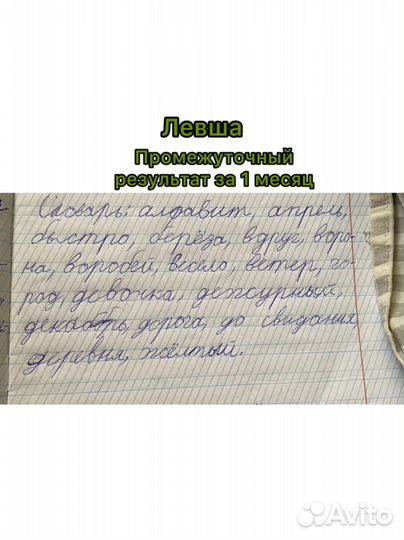 Левша
Промежуточный
результат за 1 месяц
Словарь: алфавит, апрель,
быстро, берёза, вдруг, воро-
на, воробей, весело, ветер, го-
род, девочка, дежурный,
декабрь, дорога, до свидания,
деревня, жёлтый.
Avito